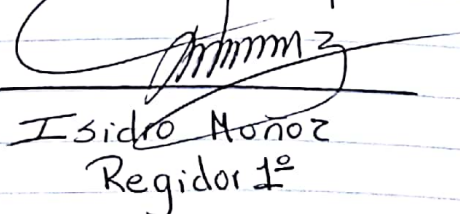 Isidro Moñoz
Regidor 1º